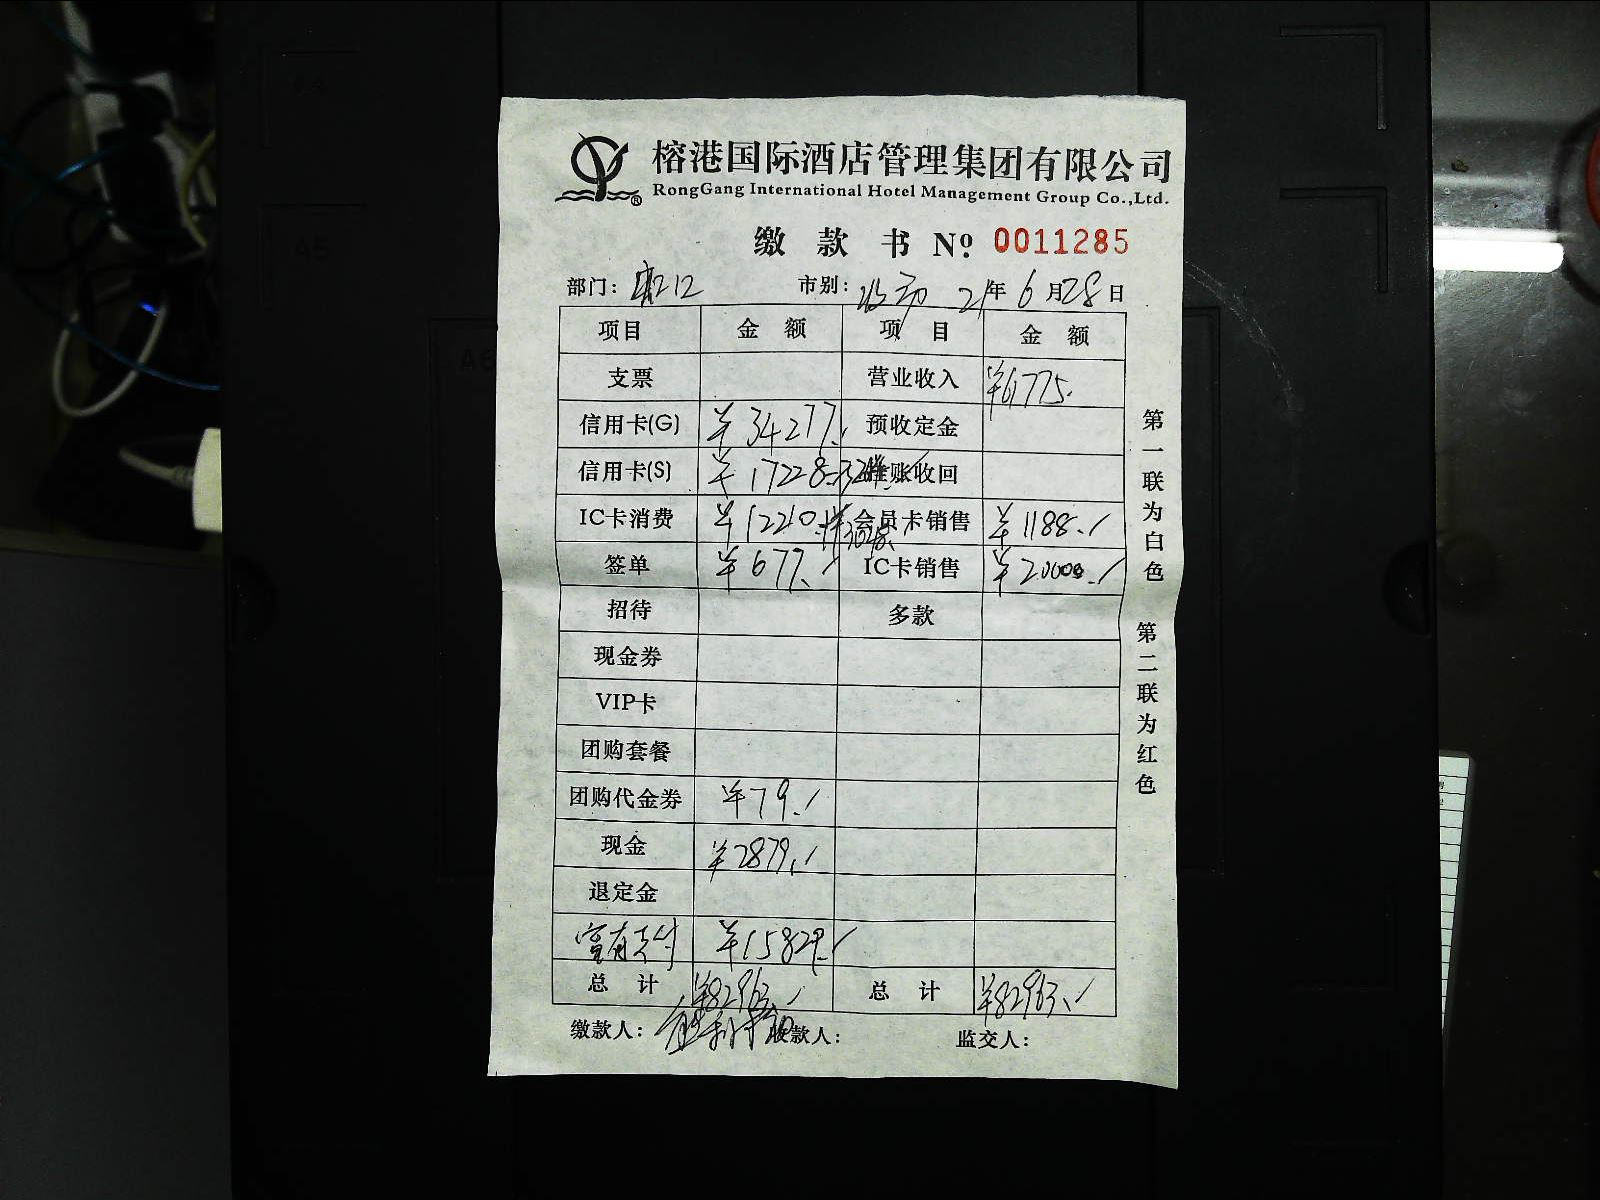 榕港国际酒店管理集团有限公司
RongGang International Hotel Management Group Co.,Ltd.
缴 款 书 Nº: 0011285
部门: 市别: 21年 6月28日
项目 金 额 项 目 金 额
支票 营业收入 ¥61775.
信用卡(G) ¥34277. 预收定金
信用卡(S) ¥17228. 挂账收回
IC卡消费 ¥12210. 会员卡销售 ¥1188.
签单 ¥677. IC卡销售 ¥20000.
招待 多款
现金券
VIP卡
团购套餐
团购代金券 ¥79.
现金 ¥2879.
退定金
富有支付 ¥15829.
总 计 ¥82963. 总 计 ¥82963.
缴款人: 收款人: 监交人:
第一联为白色
第二联为红色
A5
A6